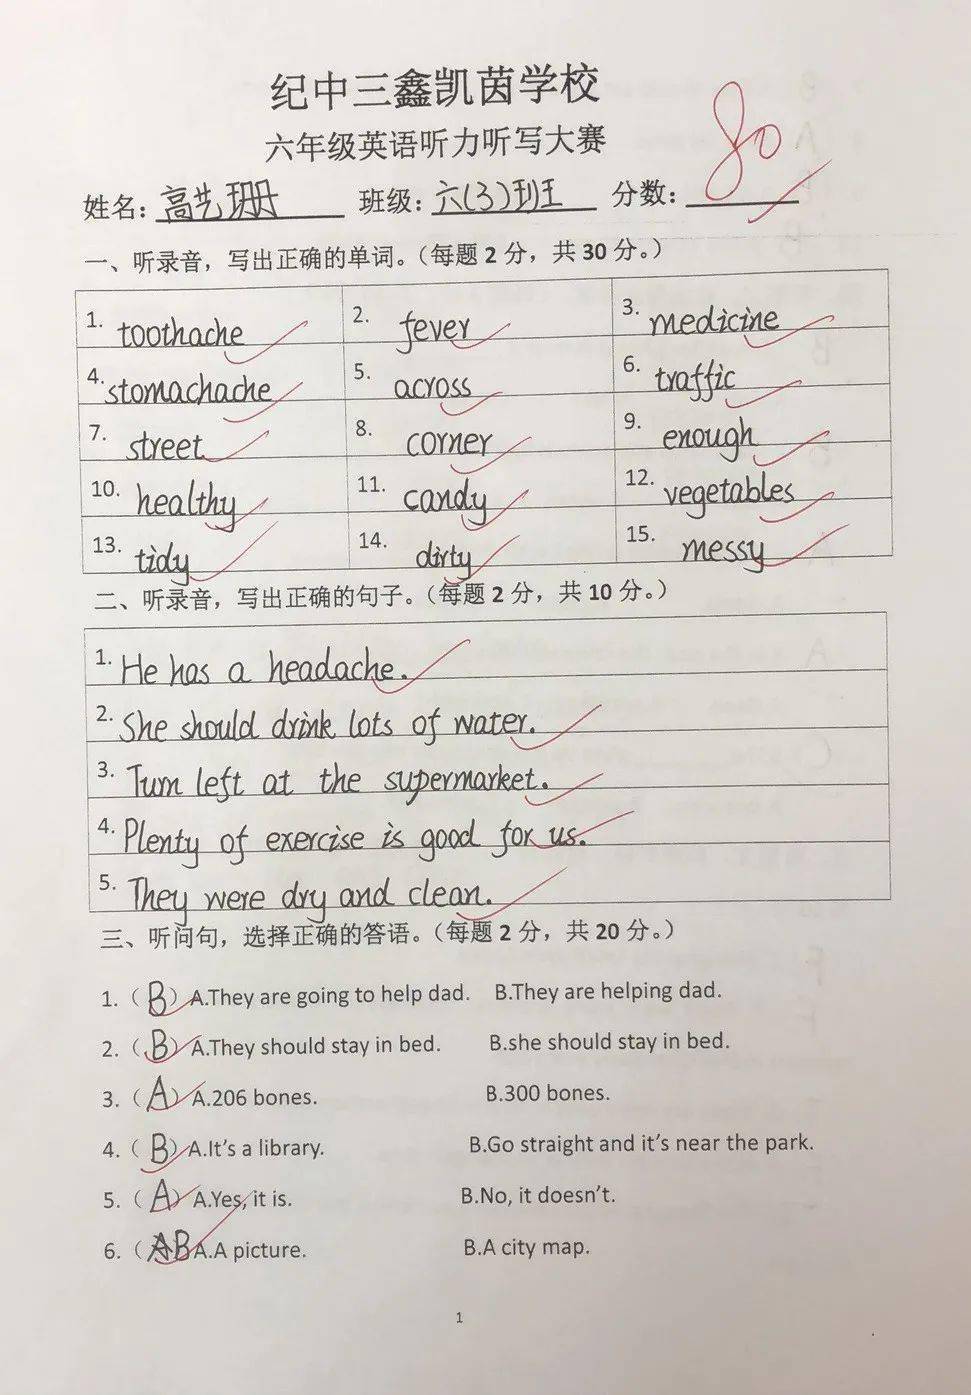 纪中三鑫凯茵学校
六年级英语听力听写大赛
姓名: 高艺珊 班级: 六(3)班 分数: 80
一、听录音，写出正确的单词。（每题 2 分，共 30 分。）
1. toothache 2. fever 3. medicine
4. stomachache 5. across 6. traffic
7. street 8. corner 9. enough
10. healthy 11. candy 12. vegetables
13. tidy 14. dirty 15. messy
二、听录音，写出正确的句子。（每题 2 分，共 10 分。）
1. He has a headache.
2. She should drink lots of water.
3. Turn left at the supermarket.
4. Plenty of exercise is good for us.
5. They were dry and clean.
三、听问句，选择正确的答语。（每题 2 分，共 20 分。）
1.（ B ）A.They are going to help dad. B.They are helping dad.
2.（ B ）A.They should stay in bed. B.she should stay in bed.
3.（ A ）A.206 bones. B.300 bones.
4.（ B ）A.It's a library. B.Go straight and it's near the park.
5.（ A ）A.Yes, it is. B.No, it doesn't.
6.（ B A.A picture. B.A city map.
1